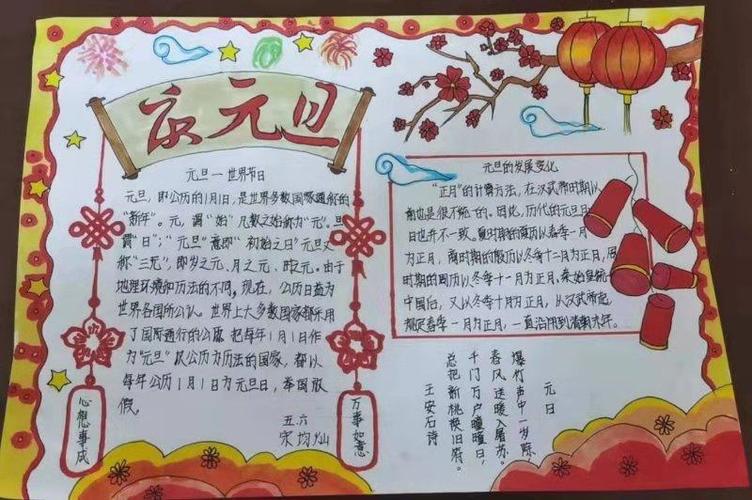 庆元旦
元旦一世界节日
元旦，即公历的1月1日，是世界多数国家通称的
"新年"。元，谓"始"凡数之始称为"元"。旦
谓"日"；"元旦"意即"初始之日"元旦又
称"三元"，即岁之元、月之元、时之元。由于
地理环境和历法的不同，现在，公历日益为
世界各国所公认。世界上大多数国家都采用
了国际通行的公历 把每年1月1日作
为"元旦"以公历为历法的国家，都以
每年公历1月1日为元旦日，举国放
假。
五.六
宋均灿
心想事成
万事如意
元旦的发展变化
"正月"的计算方法，在汉武帝时期以
前也是很不统一的。因此，历代的元旦日
日也并不一致。夏时期的夏历以春季一月
为正月，商时期的殷历以冬季十二月为正月，周
时期的周历以冬季十一月为正月，秦始皇统一
中国后，又以冬季十月为正月，从汉武帝起，
规定春季一月为正月，一直沿用到清朝末年。
元日
爆竹声中一岁除，
春风送暖入屠苏。
千门万户曈曈日，
总把新桃换旧符。
王安石诗